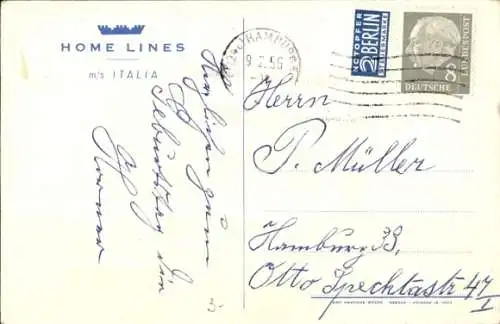 HOME LINES
m/s ITALIA
Herzlichen zum
Geburtstag Dir
HAMBURG
9.2.56
NOTOPFER
2 BERLIN
STEUERMARKE
8
DEUTSCHE BUNDESPOST
Herrn
P. Müller
Hamburg 33,
Otto Spechtastr 47
I
3.-